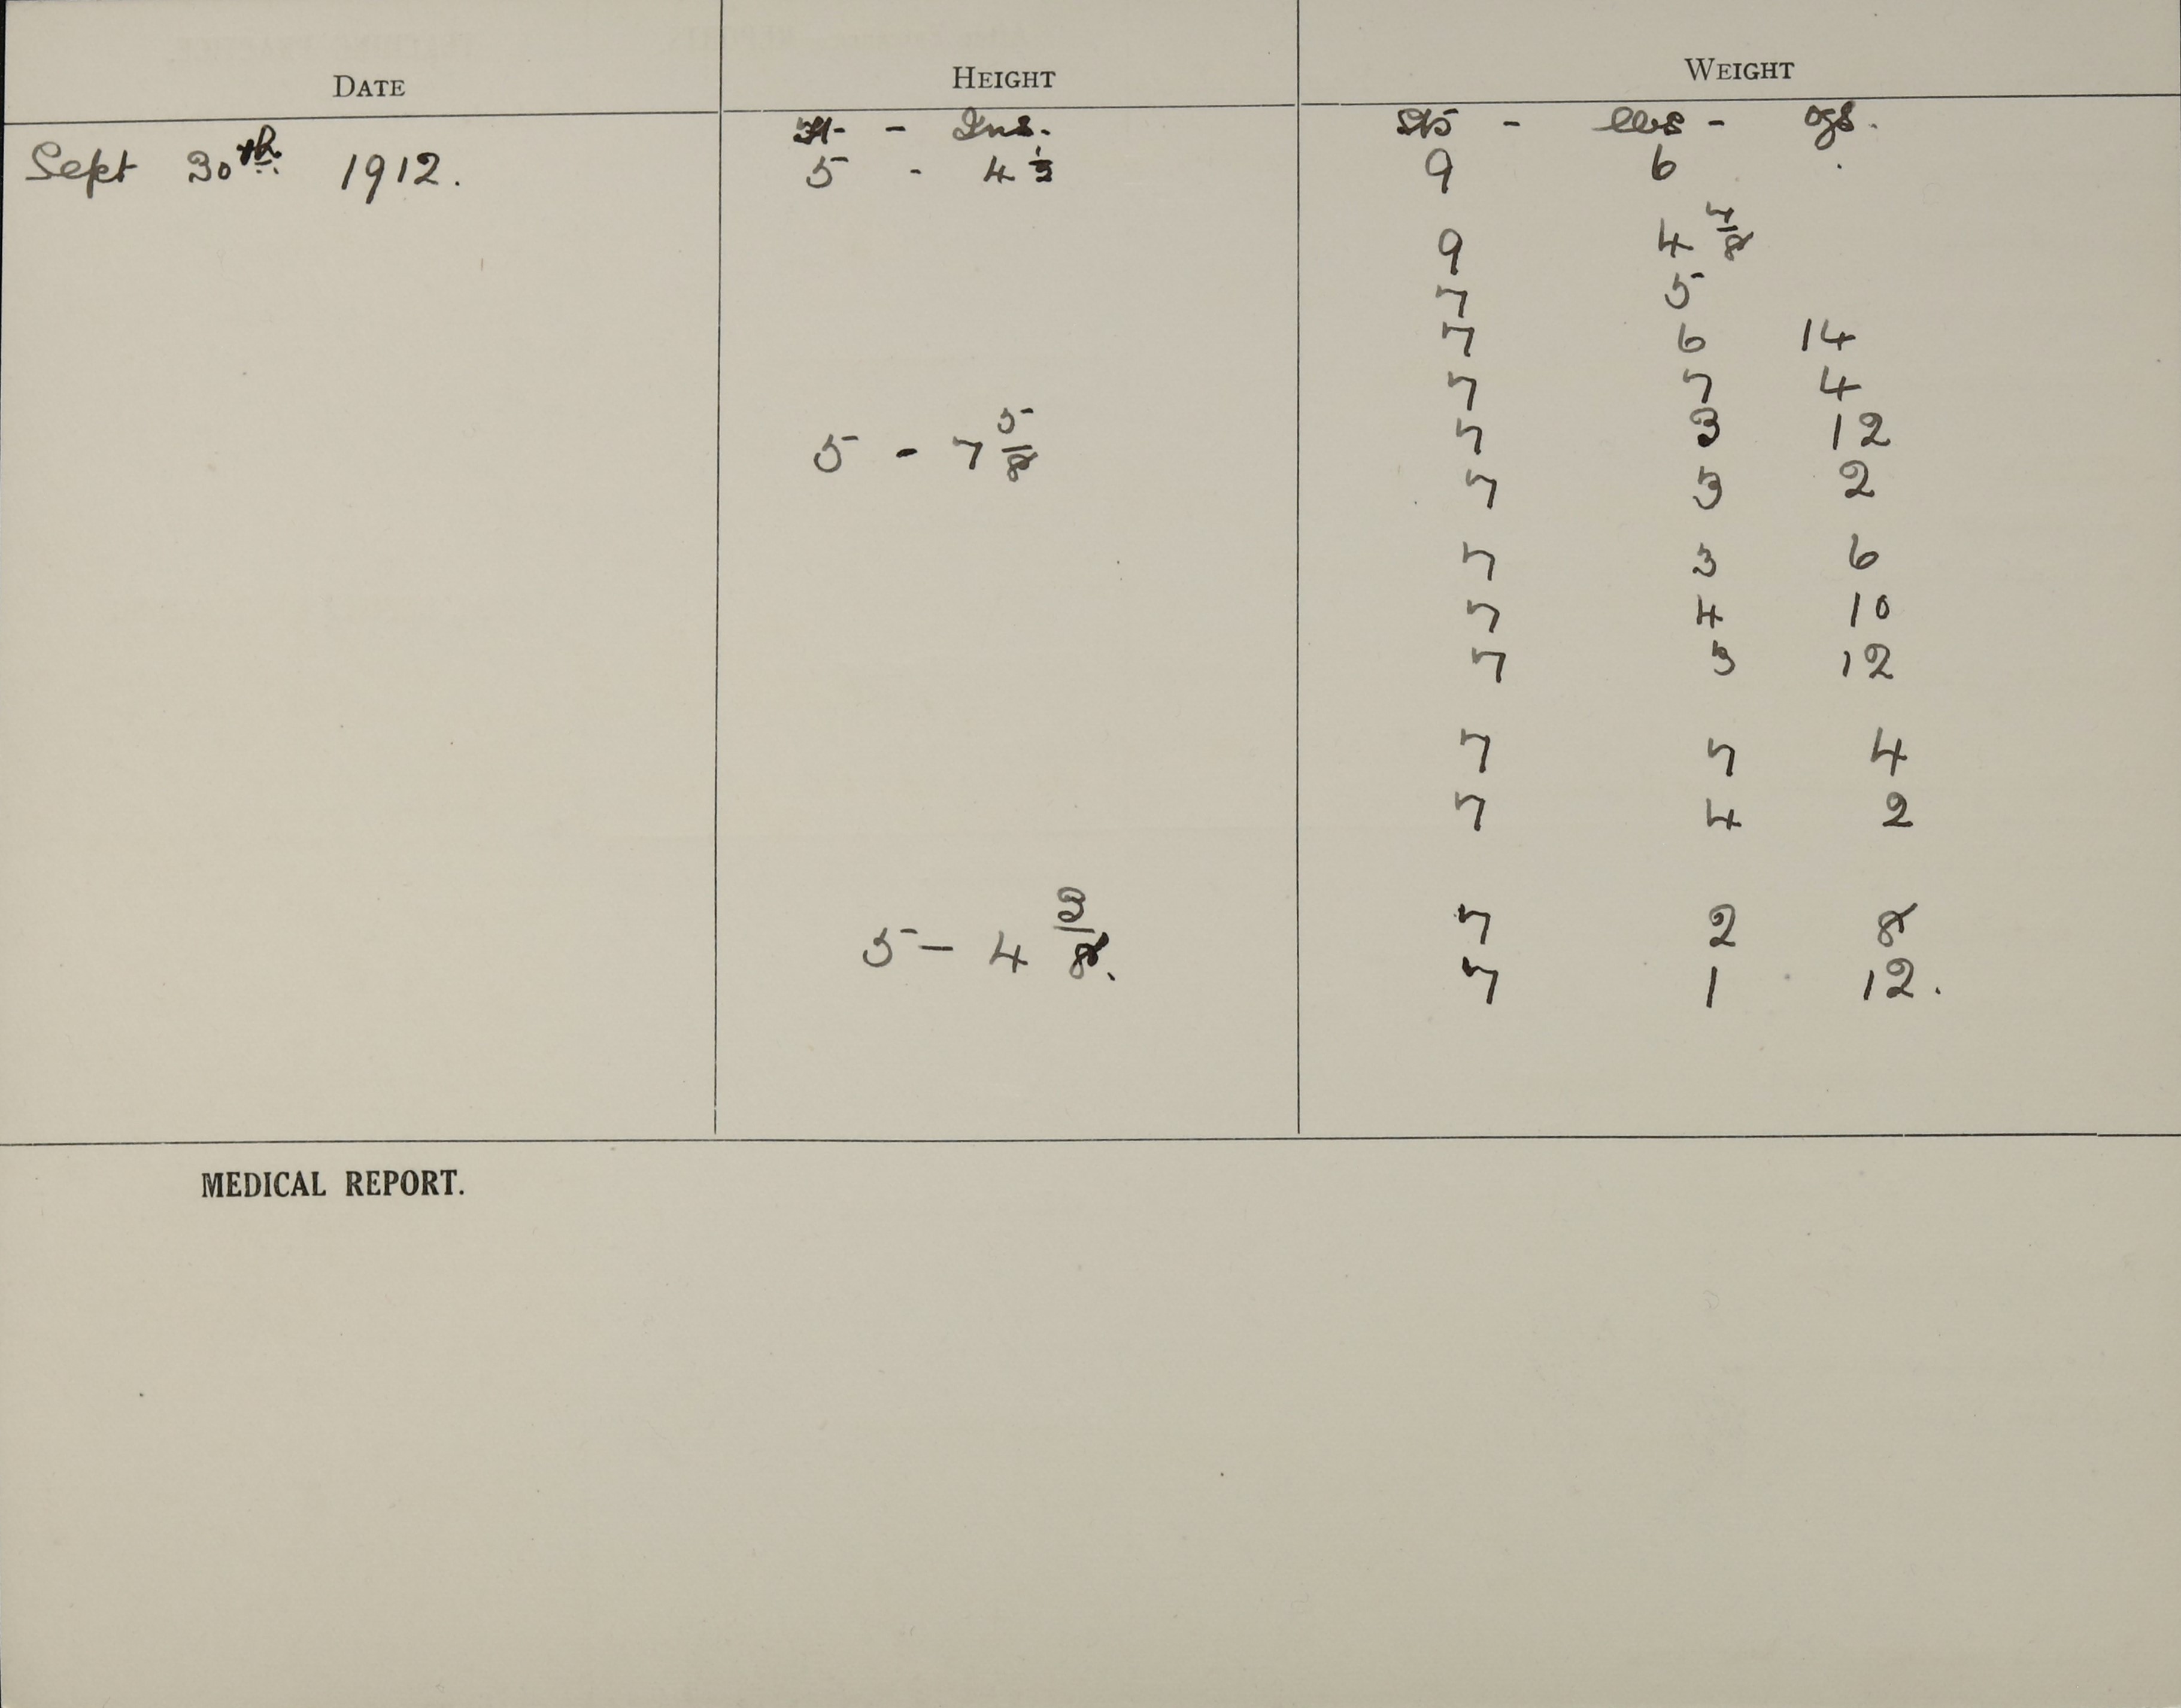 DATE HEIGHT WEIGHT
Ft - Ins. Sts - lbs - ozs.
Sept 30th. 1912. 5 - 4 1/2 9 6 .
9 4 7/8
7 5
7 6 14
7 7 4
5 - 7 5/8 7 3 12
7 3 2
7 3 6
7 4 10
7 3 12
7 7 4
7 4 2
7 2 8
5 - 4 3/8. 7 1 12.
MEDICAL REPORT.